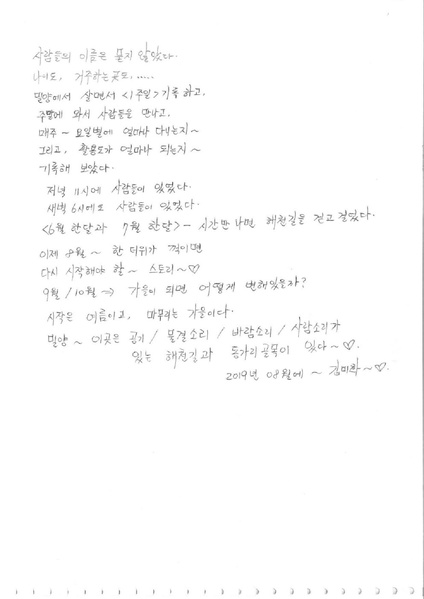 사람들의 이름은 묻지 않았다.
나이도, 거주하는 곳도, .....
밀양에서 살면서 <1주일> 기록하고,
주말에 와서 사람들을 만나고,
매주 ~ 요일별에 얼마나 다니는지~
그리고, 활용도가 얼마나 되는지~
기록해 보았다.
저녁 11시에 사람들이 있었다.
새벽 6시에도 사람들이 있었다.
<6월 한달과 7월 한달> - 시간만 나면 해천길을 걷고 걸었다.
이제 8월 ~ 한 더위가 꺽이면
다시 시작해야 할 ~ 스토리 ~ ♡
9월 / 10월 => 가을이 되면 어떻게 변해있을까?
시작은 여름이고, 마무리는 가을이다.
밀양 ~ 이곳은 공기 / 물결소리 / 바람소리 / 사람소리가
있는 해천길과 동가리골목이 있다 ~ ♡.
2019년 08월에 ~ 김미화 ~ ♡.